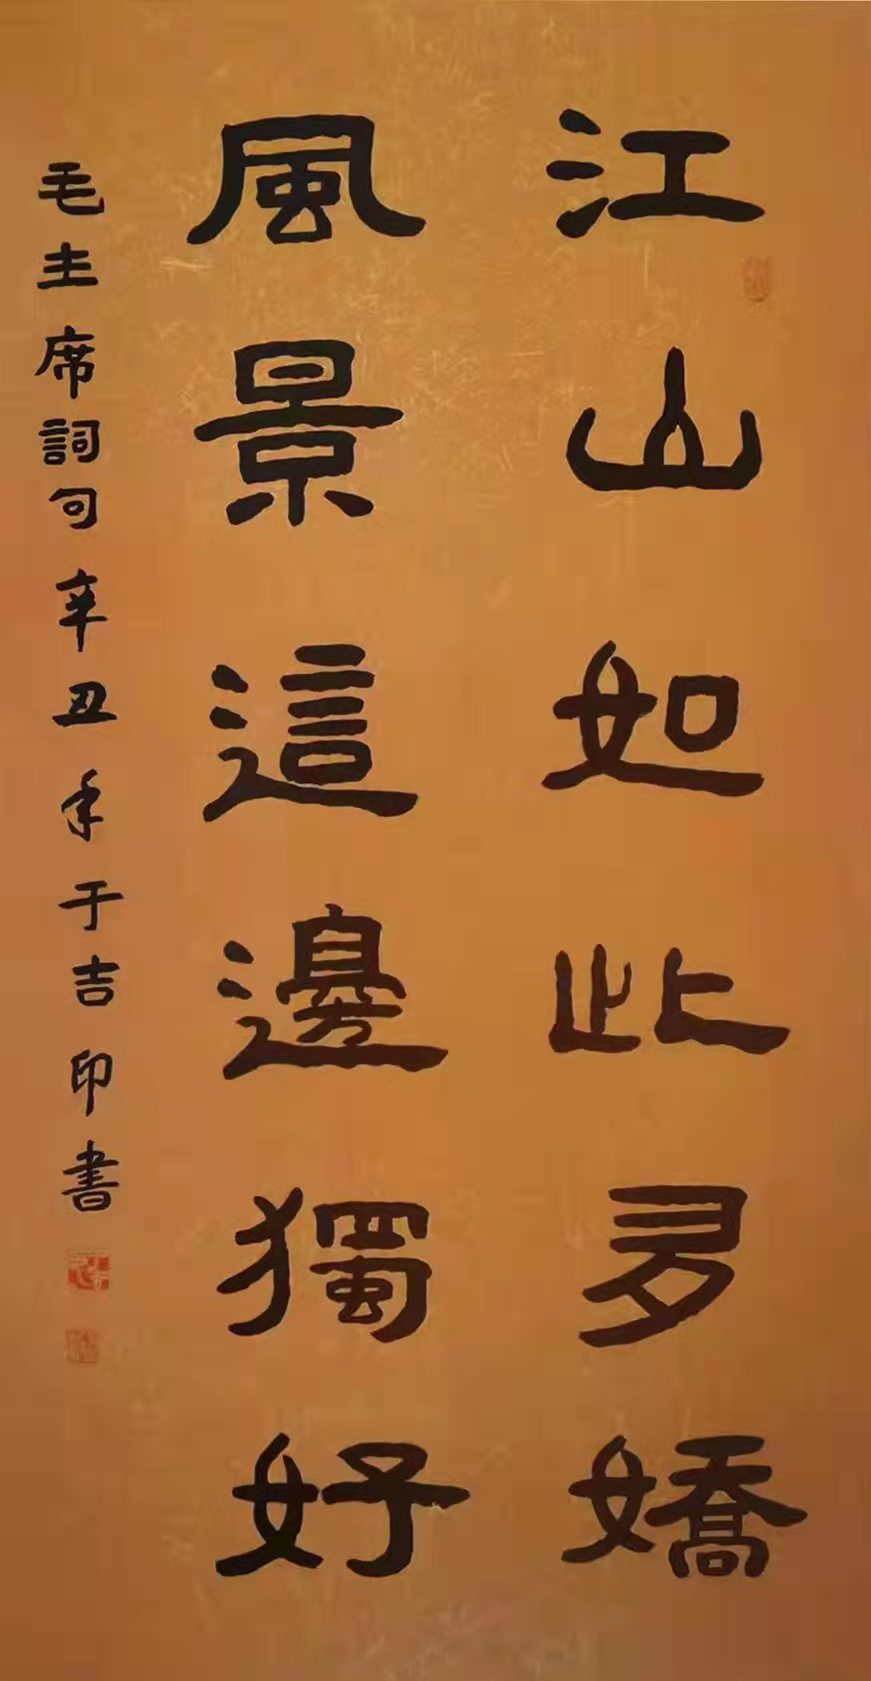 江山如此多嬌
風景這邊獨好
毛主席詞句辛丑年于吉印書